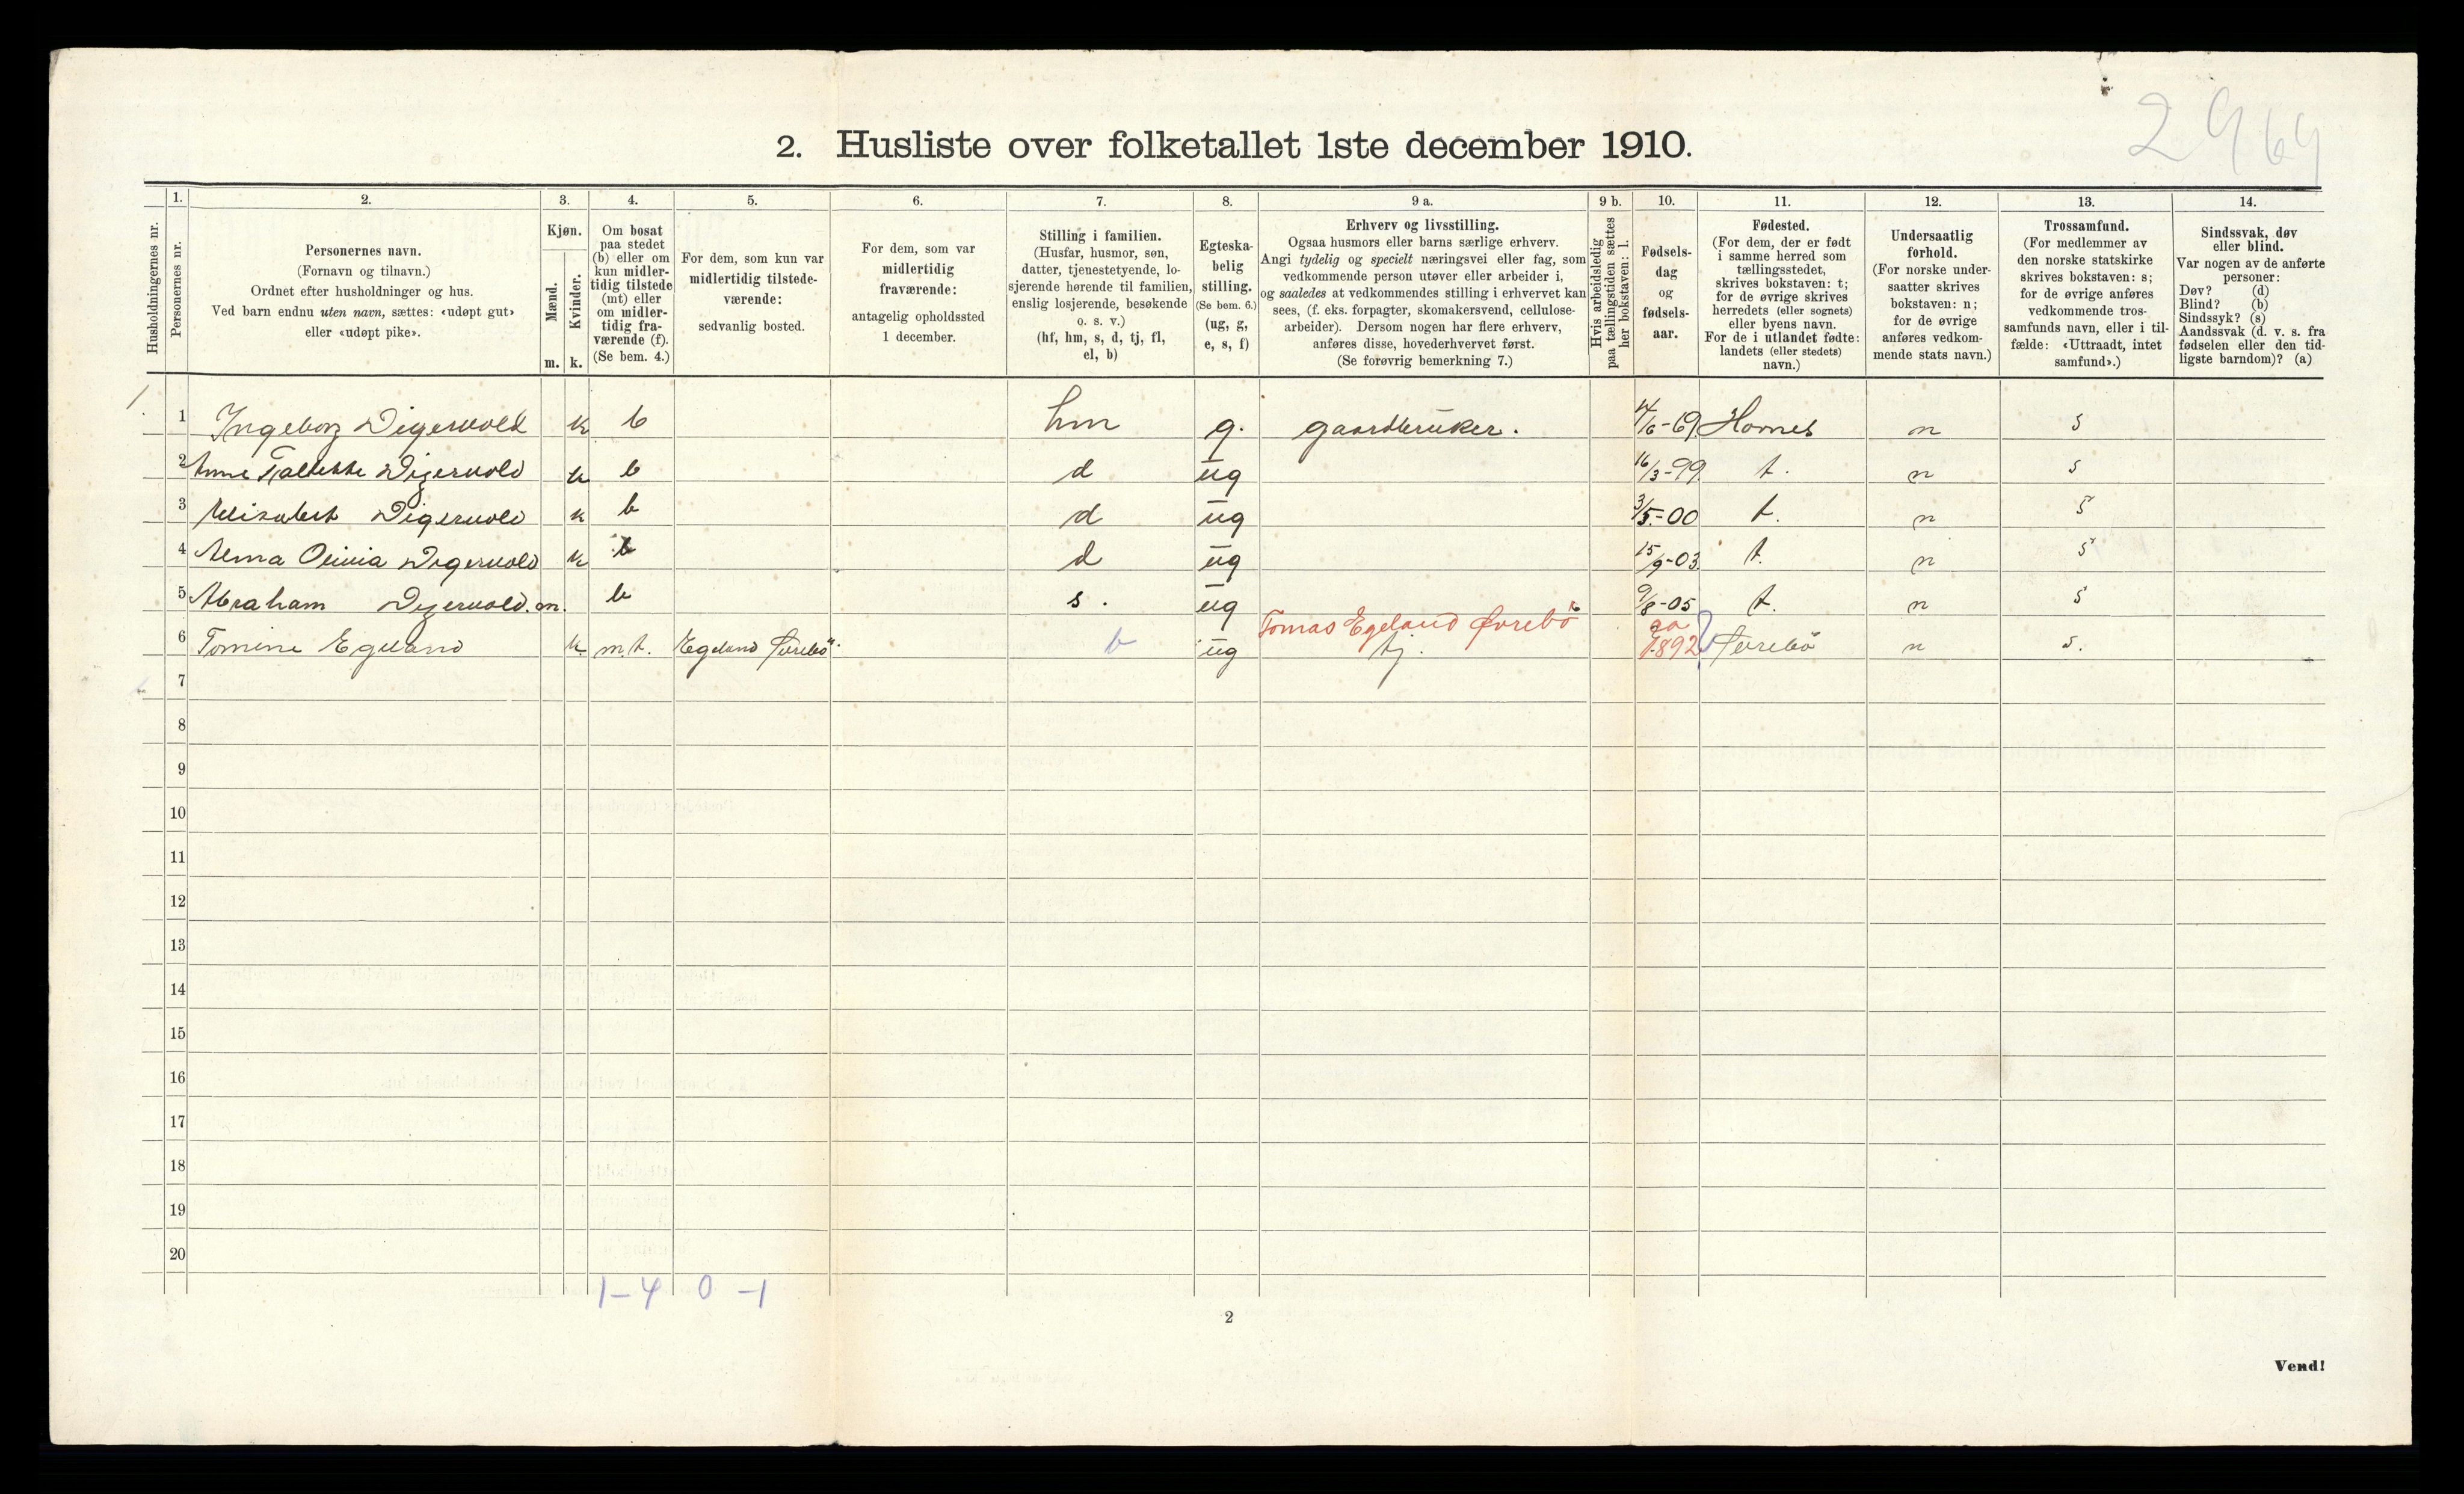 2969
2. Husliste over folketallet 1ste december 1910.
Husholdningernes nr.
1.
Personernes nr.
2.
Personernes navn.
(Fornavn og tilnavn.)
Ordnet efter husholdninger og hus.
Ved barn endnu uten navn, sættes: «udøpt gut»
eller «udøpt pike».
3.
Kjøn.
Mænd.
Kvinder.
m. k.
4.
Om bosat
paa stedet
(b) eller om
kun midler-
tidig tilstede
(mt) eller
om midler-
tidig fra-
værende (f).
(Se bem. 4.)
5.
For dem, som kun var
midlertidig tilstede-
værende:
sedvanlig bosted.
6.
For dem, som var
midlertidig
fraværende:
antagelig opholdssted
1 december.
7.
Stilling i familien.
(Husfar, husmor, søn,
datter, tjenestetyende, lo-
sjerende hørende til familien,
enslig losjerende, besøkende
o. s. v.)
(hf, hm, s, d, tj, fl,
el, b)
8.
Egteska-
belig
stilling.
(Se bem. 6.)
(ug, g,
e, s, f)
9 a.
Erhverv og livsstilling.
Ogsaa husmors eller barns særlige erhverv.
Angi tydelig og specielt næringsvei eller fag, som
vedkommende person utøver eller arbeider i,
og saaledes at vedkommendes stilling i erhvervet kan
sees, (f. eks. forpagter, skomakersvend, cellulose-
arbeider). Dersom nogen har flere erhverv,
anføres disse, hovederhvervet først.
(Se forøvrig bemerkning 7.)
9 b.
Hvis arbeidsledig
paa tællingstiden sættes
her bokstaven: l.
10.
Fødsels-
dag
og
fødsels-
aar.
11.
Fødested.
(For dem, der er født
i samme herred som
tællingsstedet,
skrives bokstaven: t;
for de øvrige skrives
herredets (eller sognets)
eller byens navn.
For de i utlandet fødte:
landets (eller stedets)
navn.)
12.
Undersaatlig
forhold.
(For norske under-
saatter skrives
bokstaven: n;
for de øvrige
anføres vedkom-
mende stats navn.)
13.
Trossamfund.
(For medlemmer av
den norske statskirke
skrives bokstaven: s;
for de øvrige anføres
vedkommende tros-
samfunds navn, eller i til-
fælde: «Uttraadt, intet
samfund».)
14.
Sindssvak, døv
eller blind.
Var nogen av de anførte
personer:
Døv? (d)
Blind? (b)
Sindssyk? (s)
Aandssvak (d. v. s. fra
fødselen eller den tid-
ligste barndom)? (a)
1. 1 Ingeborg Digervold k b hm g. gaardbruker. /6-69 Homes n s
2 Anne Digervold k b d ug 16/3-99 t. n s
3 Elisabert Digervold k b d ug 3/5-00 t. n s
4 Alma Olivia Digervold k b d ug 15/9-03. t. n s
5 Abraham Digervold. m. b s. ug 9/8-05 t. n s
Tomas Egeland Øvrebö
6 Tomine Egeland k. m.t. Egeland Øvrebö b ug tj. 1892 ? Øvrebö n s.
7
8
9
10
11
12
13
14
15
16
17
18
19
20
1-4 0-1
2
Vend!